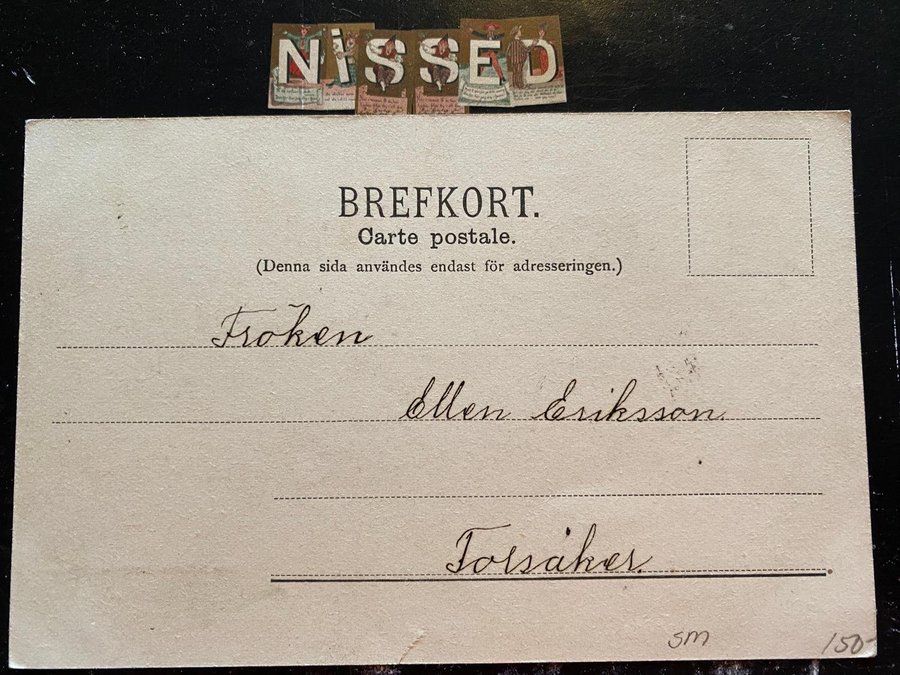 NiSSED
BREFKORT.
Carte postale.
(Denna sida användes endast för adresseringen.)
Fröken
Ellen Eriksson
Forsåker.
SM
150-